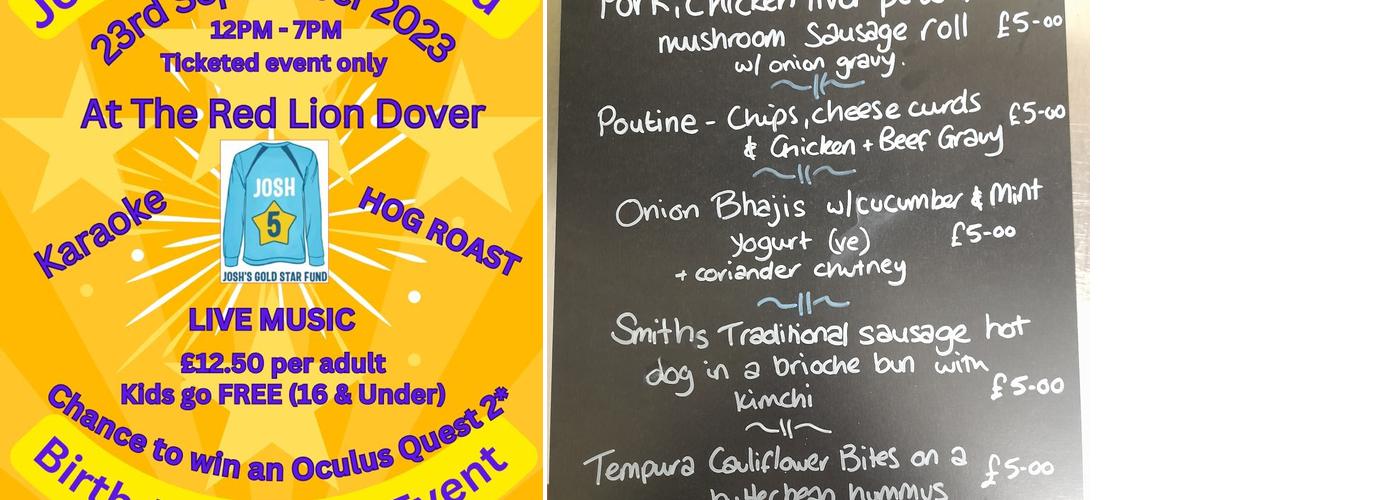 23rd September 2023
12PM - 7PM
Ticketed event only
At The Red Lion Dover
JOSH
5
JOSH'S GOLD STAR FUND
Karaoke
HOG ROAST
LIVE MUSIC
£12.50 per adult
Kids go FREE (16 & Under)
Chance to win an Oculus Quest 2*
Event
Pork, Chicken liver
mushroom Sausage roll £5-00
w/ onion gravy.
Poutine - Chips, cheese curds £5-00
& Chicken + Beef Gravy
Onion Bhajis w/cucumber & Mint
yogurt (ve) £5-00
+ coriander chutney
Smiths Traditional sausage hot
dog in a brioche bun with
kimchi £5-00
Tempura Cauliflower Bites on a £5-00
hummus